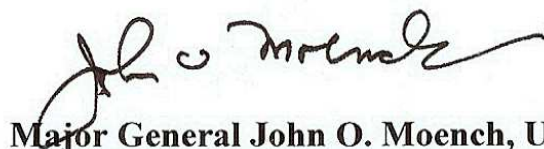 John O Moench
Major General John O. Moench, U